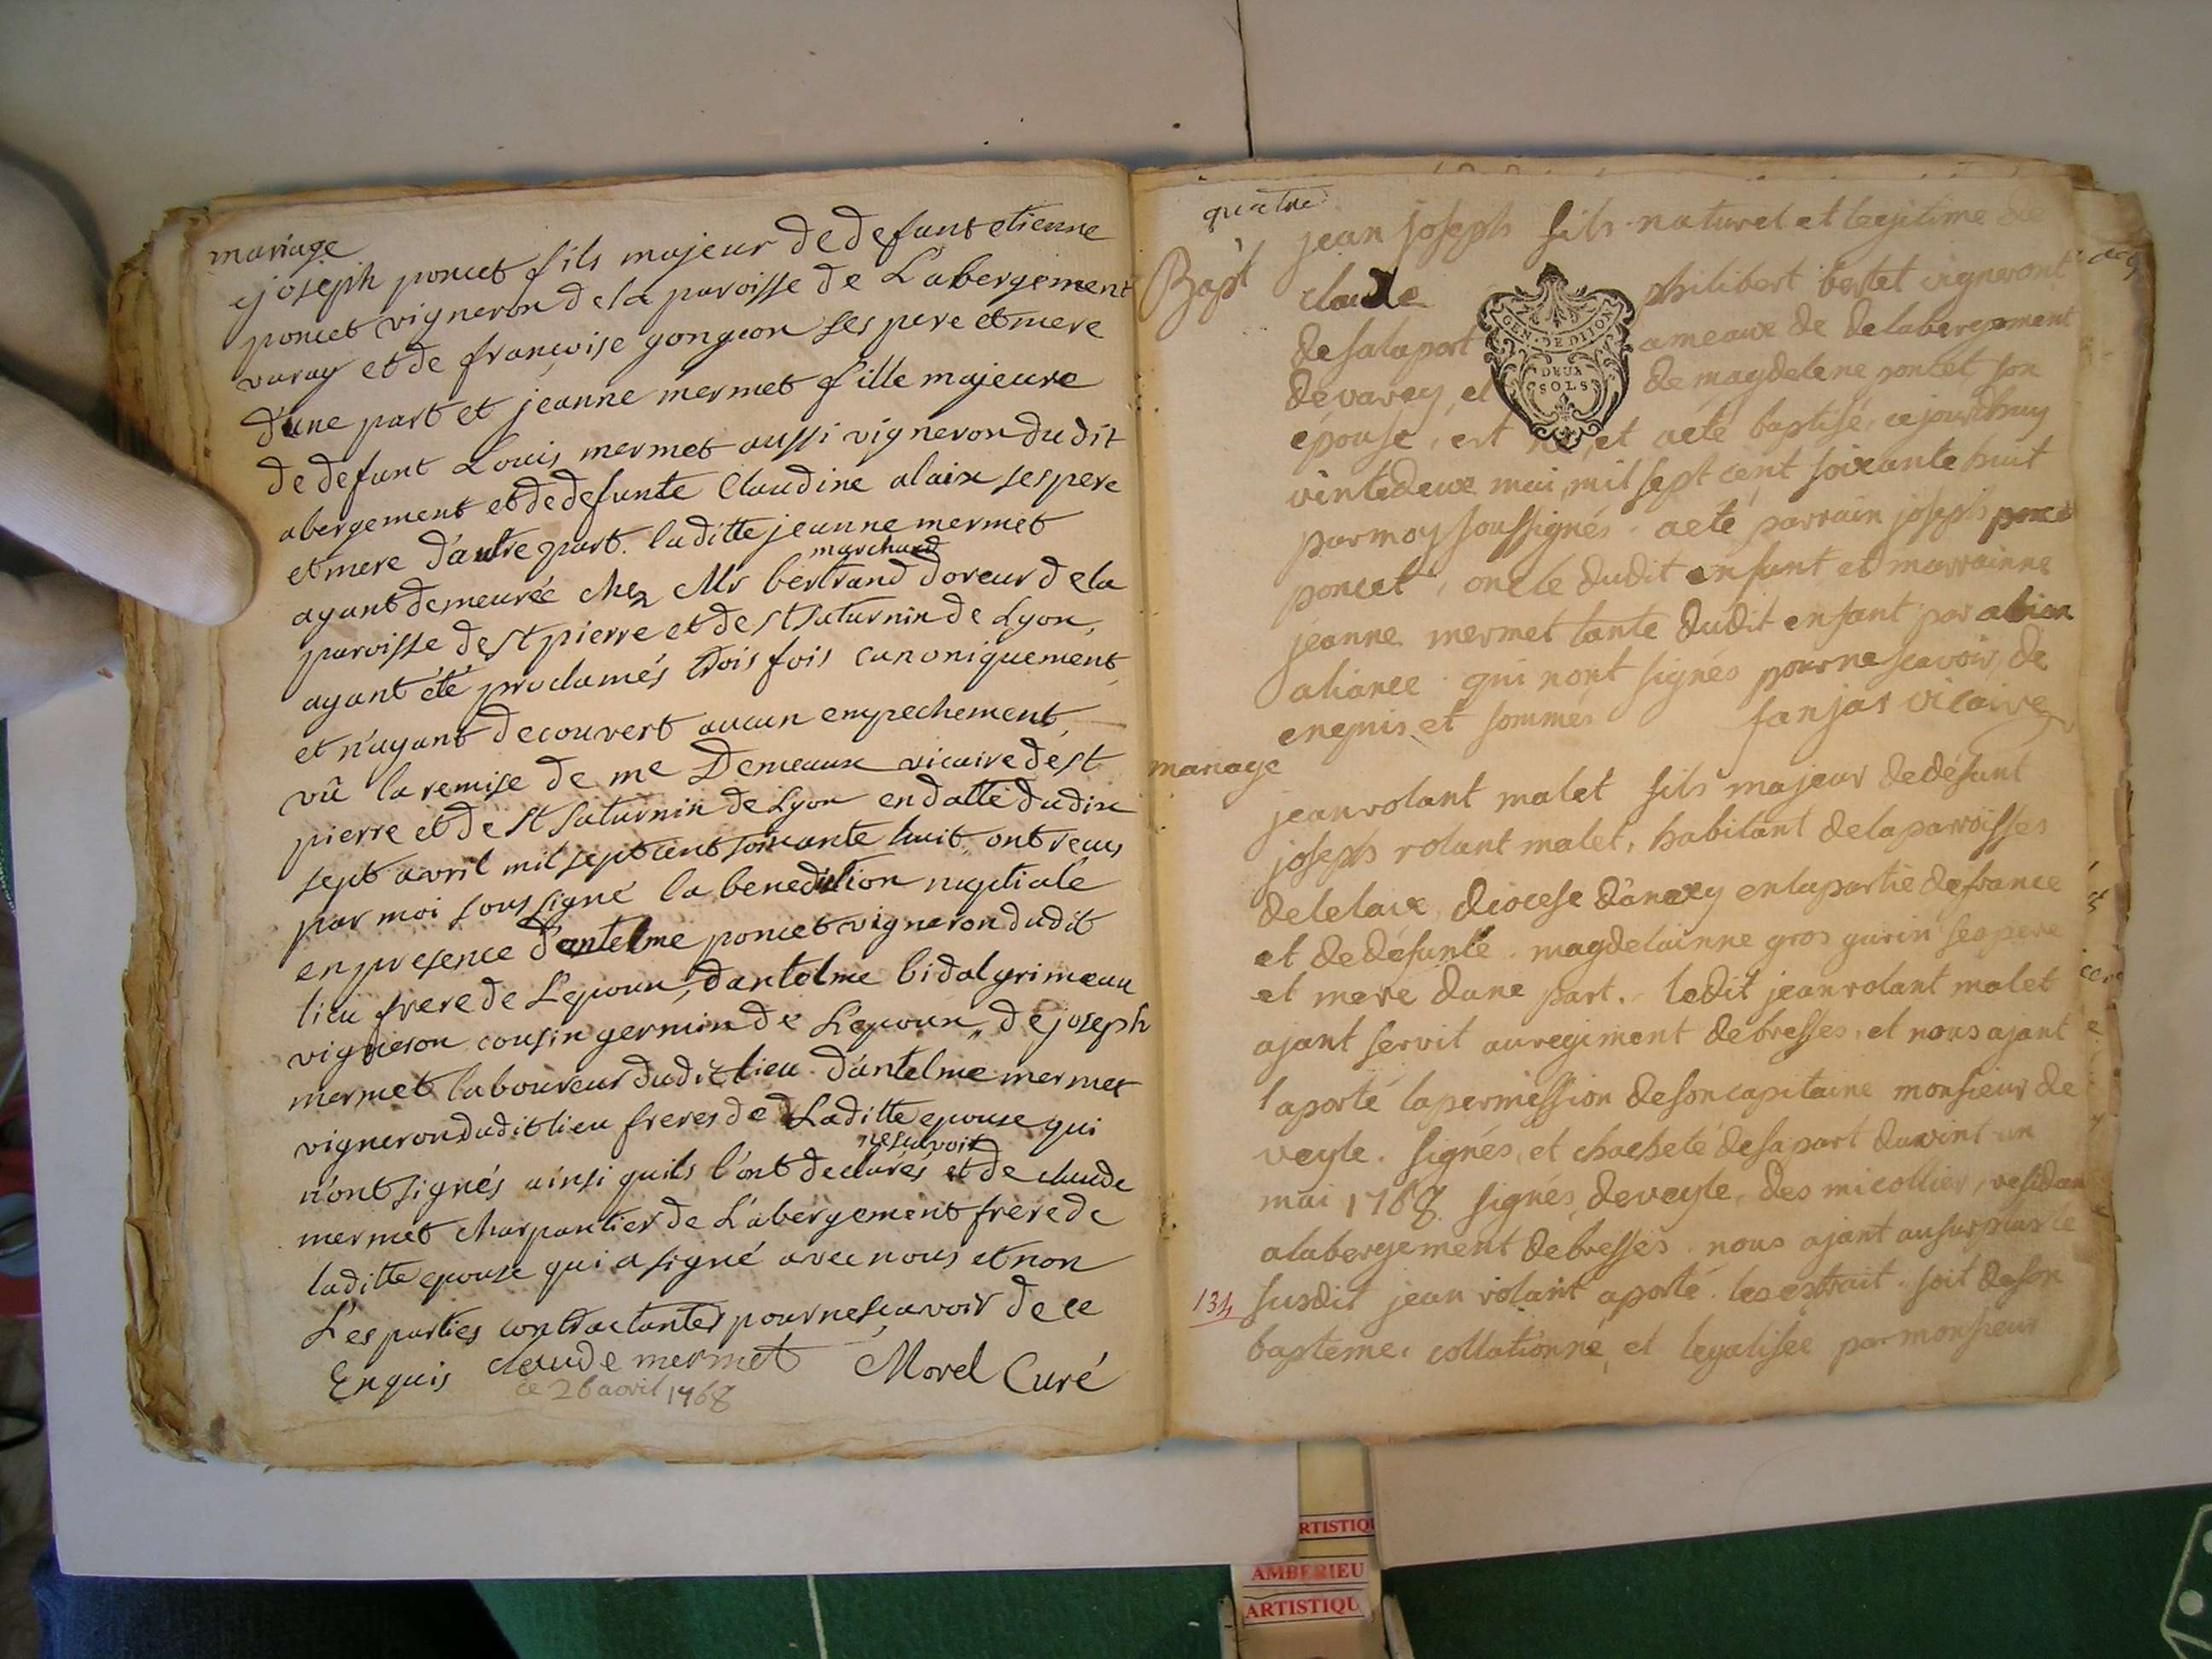 mariage
joseph poncet fils majeur de defunt etienne
poncet vigneron de la paroisse de L'abergement
varay et de françoise gongeon ses pere et mere
d'une part et jeanne mermet fille majeure
de defunt Louis mermet aussi vigneron dudit
abergement et de defunte Claudine alaix ses pere
et mere d'autre part. laditte jeanne mermet
marchand
ayant demeurée chez Mr bertrand doreur de la
paroisse de st pierre et de st saturnin de Lyon,
ayant été proclamés trois fois canoniquement,
et n'ayant decouvert aucun empechement,
vû la remise de me Demeaux vicaire de st
pierre et de st saturnin de Lyon en datte du dix
sept avril mil sept cent soixante huit, ont recus
par moi sous signé la benediction nuptiale
en presence d'antelme poncet vigneron dudit
lieu frere de L'epoux, d'antelme bidal grimeau
vigneron cousin germin de L'epoux, de joseph
mermet laboureur dudit lieu d'antelme mermet
vigneron dudit lieu freres de Laditte epouse qui
ne savoir
n'ont signés ainsi quils l'ont declarés et de claude
mermet charpantier de L'abergement frere de
laditte epouse qui a signé avec nous et non
Les parties contractantes pour ne sçavoir de ce
Enquis claude mermet Morel Curé
ce 26 avril 1768
quatre
Bapt
jean joseph fils naturel et legitime de
claude philibert bertet vigneront
de sa la port ameaux de de labergement
de varey, et de magdelene poncet son
épouse, est né, et aeté baptisé, ce jourdhuy
vintedeux mai, mil sept cent soixante huit
par moy soussignés. aeté parrain joseph
poncet, oncle dudit enfant et marrainne
jeanne mermet tante dudit enfant par
aliance. qui nont signés pour ne scavoir, de
enquis et sommés fanjas vicaire
mariage
jean rolant malet fils majeur de défunt
joseph rolant malet, habitant de la parroisses
de lelaix, diocese d'anexy en la partie de france
et de défunte. magdelainne gros gurin ses pere
et mere dune part. ledit jean rolant malet
ajant servit au regiment de bresses, et nous ajant
aporté la permission de son capitaine monsieur de
veyle. signés, et chacheté de sa part du vint un
mai 1768. signés, de veyle, des micollier, residan
a labergement de bresses. nous ajant au surplus le
134
susdit jean rolant aporté. les extrait. soit de son
bapteme. collationné, et legalisée par monsieur
GEN. DE DIJON
DEUX
SOLS
RTISTIQ
AMBERIEU
ARTISTIQU